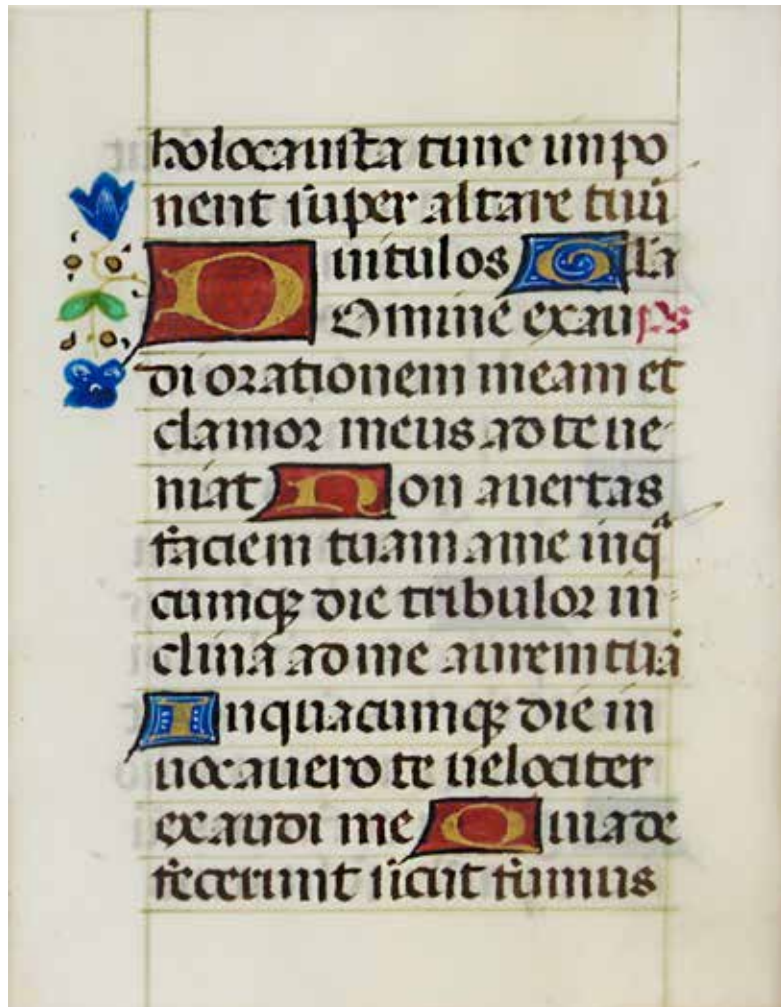 holocausta tunc impo
nent super altare tuū
uitulos Gl'a
Domine exau ps
di orationem meam et
clamor meus ad te ue-
niat Non auertas
faciem tuam a me in qᵃ
cumqꝫ die tribulor in-
clina ad me aurem tuā
In quacumqꝫ die in
uocauero te uelociter
exaudi me Quia de
fecerunt sicut fumus